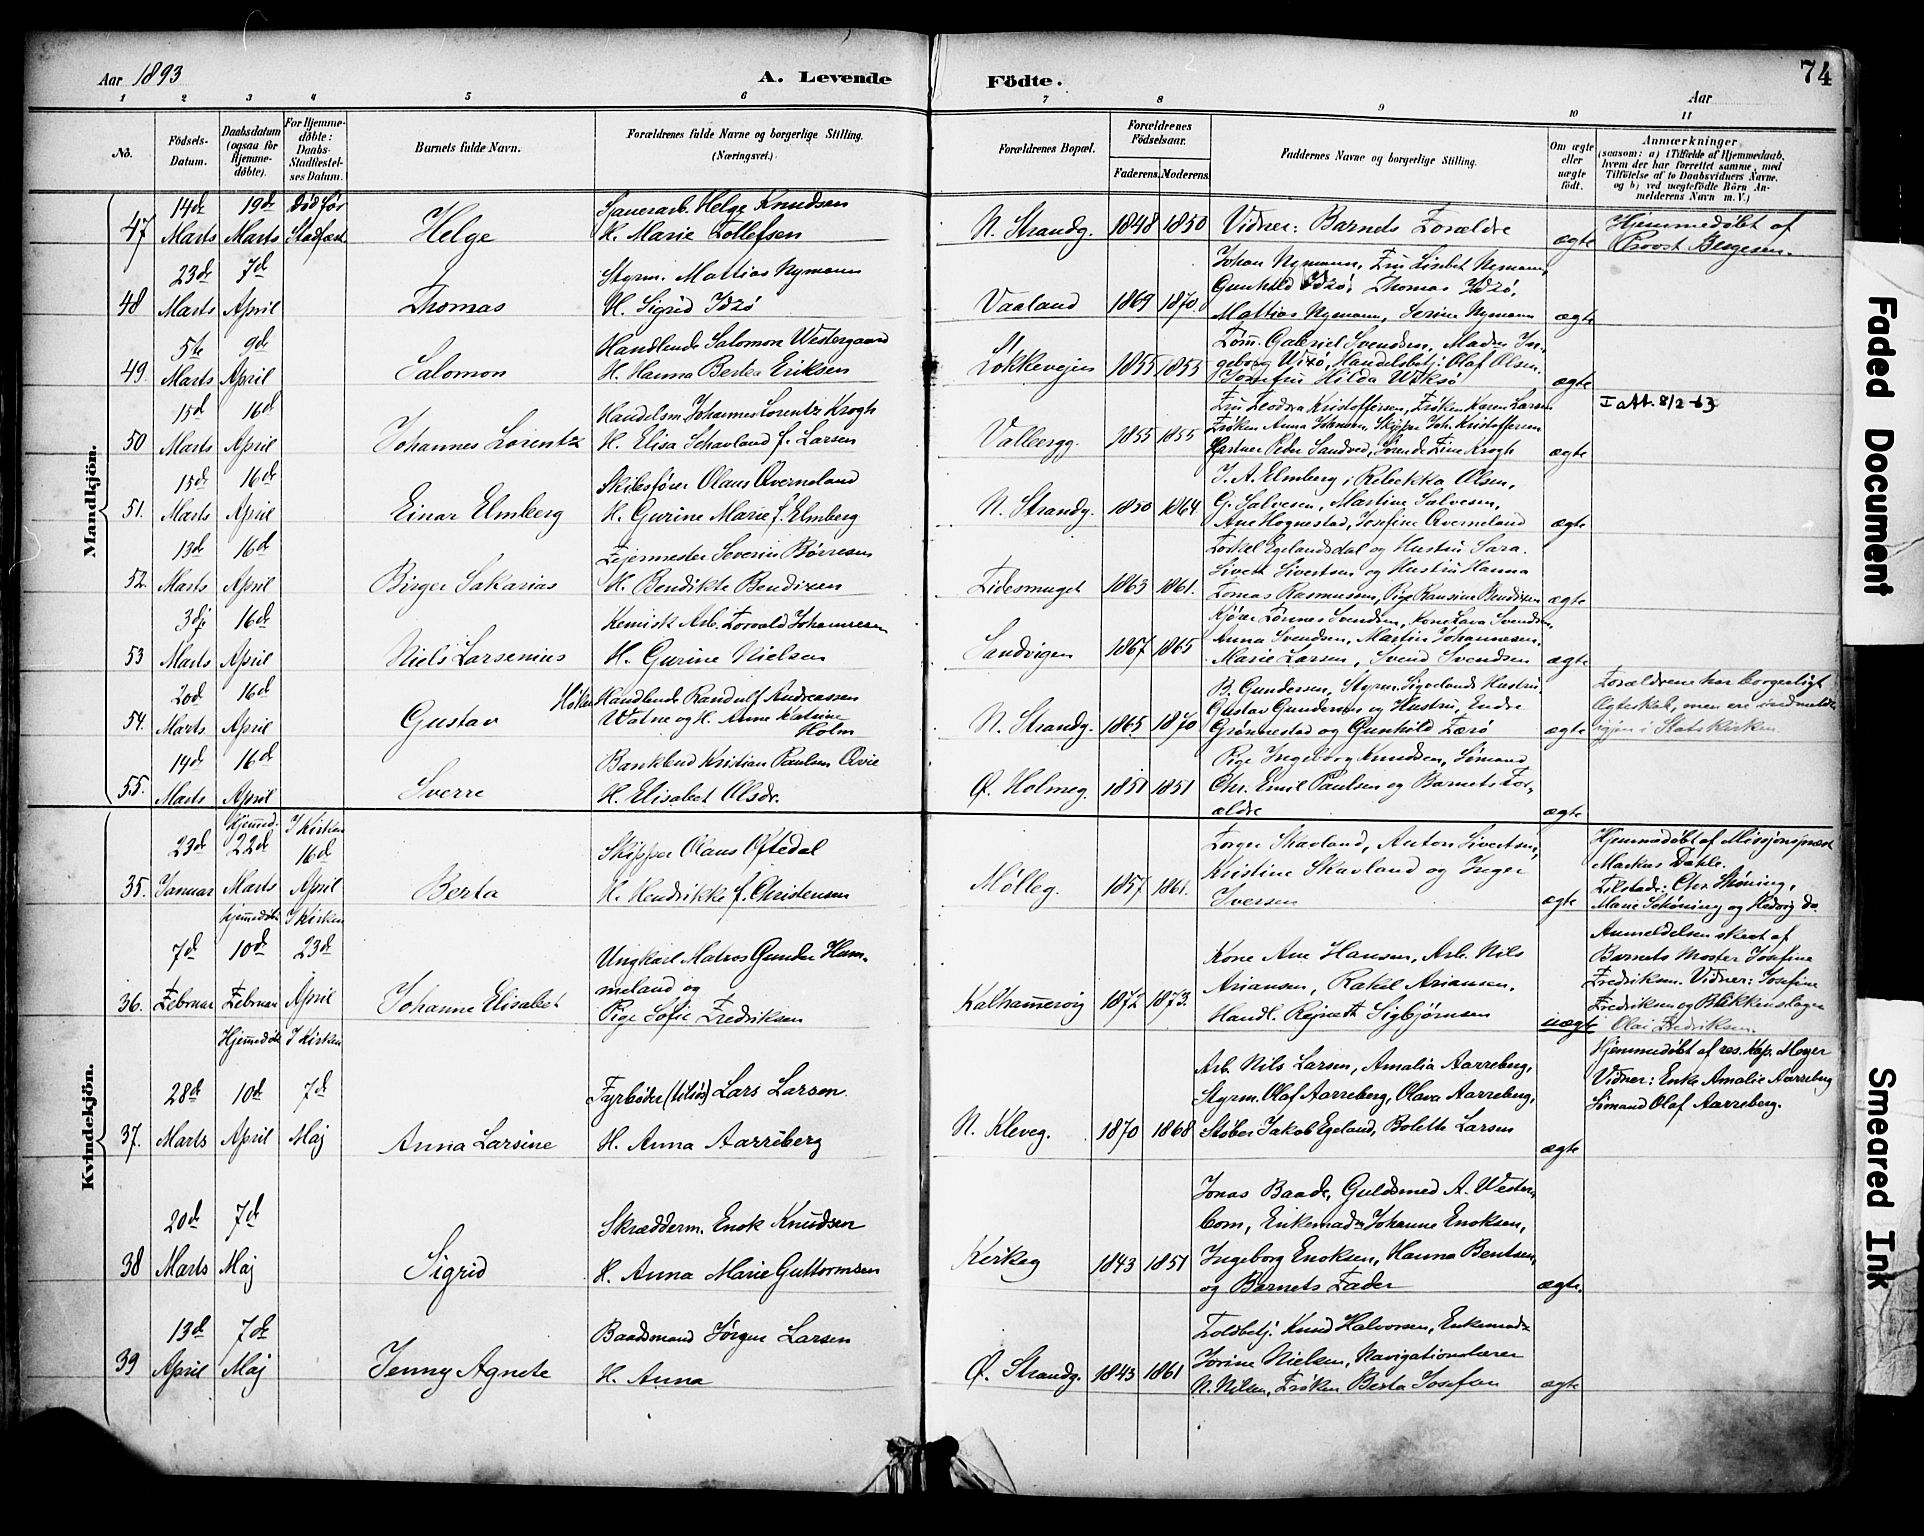 Aar 1893
A. Levende Födte.
74
Aar
1 2 3 4 5 6 7 8 9 10 11
No.
Födsels-Datum.
Daabsdatum (ogsaa för Hjemmedøbte).
For Hjemmedøbte: Daabs-Stadfæstelses Datum.
Barnets fulde Navn.
Forældrenes fulde Navne og borgerlige Stilling. (Næringsvei.)
Forældrenes Bopæl.
Forældrenes Födselsaar.
Faderens. Moderens.
Faddernes Navne og borgerlige Stilling.
Om ægte eller uægte födt.
Anmærkninger (saasom: a) i Tilfælde af Hjemmedaab, hvem der har forrettet samme, med Tilföielse af to Daabsvidners Navne. og b) ved uægtefödte Börn Anmelderens Navn m. V.)
Mandkjön.
47 14de Marts 19de Marts Død før Stadfæst
Helge
Helge Knudsen
H. Marie Tollefsen
N. Strandg. 1848 1850
Vidner: Barnets Forældre
ægte
Hjemmedøbt af
Provst Bugesen.
48 23de Marts 7de April
Thomas
Styrm. Mattias Nymann
H. Sigrid Idsø
Vaaland 1869 1870
Johan Nymann, Fru Lisbet Nymann,
Gunhild Idsø, Thomas Idsø,
Mattias Nymann, Serine Nymann
ægte
49 5te Marts 9de April
Salomon
Handlende Salomon Westergaard
H. Hanna Berta Eriksen
Løkkeveien 1855 1855
Tøm. Gabriel Svendsen, Madm In-
geborg Handelsbetj: Olaf Olsen.
Jomfru Hilda
ægte
50 15de Marts 16de April
Johannes Lorentz
Handelsm. Johannes Lorentz Krogh
H. Elisa Schavland f. Larsen
Valbergg. 1855 1855
Fru Kristoffersen, Frøken Karen Larsen
Frøken Anna Johnsen, Skipper Joh. Kristoffersen
Peder Sandved, Krogh
ægte
I att. 8/2-63
51. 15de Marts 16de April
Einar Elmberg
Skibsfører Olaus Qverneland
H. Gurine Marie f. Elmberg
N. Strandg. 1850 1864
J. A. Elmberg, Rebekka Olsen,
G. Salvesen, Martine Salvesen,
Ane Hognestad, Josefine Qverneland
ægte
52 13de Marts 16de April
Birger Sakarias
Severin Børresen
H. Bendikte Bendixen
Tidesmuget 1863 1861.
Torkel Egelandsdal og Hustru Sara.
Sivert Sivertsen og Hustru Hanna
Tomas Rasmussen, Pige Bendixen
ægte
53 3dje Marts 16de April
Niels Larsenius
Kemisk Arb. Torvald Johannesen
H. Gurine Nielsen
Sandvigen 1867 1865
Svendsen, Kone Lava Svendsen,
Anna Svendsen, Martin Johannesen,
Marie Larsen, Svend Svendsen
ægte
54. 20de Marts 16de April
Gustav
Handlende Randulf Andreassen
Watne og H. Anne Katrine
Holm
N. Strandg. 1865 1870
B. Gundersen, Styrm. Sigvelands Hustru
Gustav Gundersen og Hustru, Endre
Grønnestad og Gunhild Tærø
ægte
Forældrene har borgerligt
Ægteskab, men ere indmeldte
igjen i Statskirken
55. 14de Marts 16de April
Sverre
Bankbud Kristian Paulsen Qvie
H. Elisabet Olsdr.
Ø. Holmeg. 1851 1851
Pige Ingeborg Knudsen, Sömand
Chr. Emil Paulsen og Barnets For-
ældre
ægte
Kvindekjön.
35. 23de Januar Hjemmed. 22de Marts I Kirken 16de April
Berta
Skipper Olaus Oftedal
H. Hendrikke f. Christensen
Mølleg. 1857 1861.
Torger Skavland, Anton Sivertsen,
Kristine Skavland og Inger
Iversen
ægte
Hjemmedøbt af Missjonsprest
Markus Dahle.
Tilstede: Chr. Skøning,
Marie Schöning og Hedvig do.
36. 7de Februar Hjemmedøbt 10de Februar I Kirken 23de April
Johanne Elisabet
Ungkarl Matros Gunder Ham-
meland og
Pige Sofie Fredriksen
Kalhammervig 1872 1873.
Kone Ane Hansen, Arb. Nils
Ariansen, Rakel Ariansen,
Handl. Sigbjørnsen
uægte
Anmeldelsen skeet af
Barnets Moster Josefine
Fredriksen. Vidner: Josefine
Fredriksen og Blikkenslager
Olai Fredriksen.
37. 28de Marts Hjemmedøbt 10de April I Kirken 7de Maj
Anna Larsine
Fyrbøder (tilsøs) Lars Larsen
H. Anna Aarreberg
N. Kleveg. 1870 1868
Arb. Nils Larsen, Amalia Aarreberg,
Styrm. Olaf Aarreberg, Olava Aarreberg,
Støber Jakob Egeland, Bolette Larsen
ægte
Hjemmedøbt af res. Kap. Meyer
Vidner: Enke Amalie Aarreberg
Sömand Olaf Aarreberg.
38 20de Marts 7de Maj
Sigrid
Skrædderm. Enok Knudsen
H. Anna Marie Guttormsen
Kirkeg 1843 1851
Jonas Baade, Guldsmed A. Wester-
bom, Enkemadm Johanne Enoksen,
Ingeborg Enoksen, Hanna Bentsen,
og Barnets Fader
ægte.
39 13de April 7de Maj
Jenny Agnete
Baadsmand Jørgen Larsen
H. Anna
Ø. Strandg. 1843 1861
Toldbetj. Knud Halvorsen, Enkemadm
Jorine Nielsen, Navigationslærer
N. Nilsen, Frøken Berta Josefsen
ægte
Faded Document
Smeared Ink